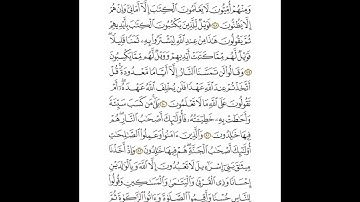 وَمِنْهُمْ أُمِّيُّونَ لَا يَعْلَمُونَ ٱلْكِتَٰبَ إِلَّآ أَمَانِىَّ وَإِنْ هُمْ
إِلَّا يَظُنُّونَ ۝ فَوَيْلٌ لِّلَّذِينَ يَكْتُبُونَ ٱلْكِتَٰبَ بِأَيْدِيهِمْ
ثُمَّ يَقُولُونَ هَٰذَا مِنْ عِندِ ٱللَّهِ لِيَشْتَرُوا۟ بِهِۦ ثَمَنًا قَلِيلًا ۖ
فَوَيْلٌ لَّهُم مِّمَّا كَتَبَتْ أَيْدِيهِمْ وَوَيْلٌ لَّهُم مِّمَّا يَكْسِبُونَ
۝ وَقَالُوا۟ لَن تَمَسَّنَا ٱلنَّارُ إِلَّآ أَيَّامًا مَّعْدُودَةً ۚ قُلْ
أَتَّخَذْتُمْ عِندَ ٱللَّهِ عَهْدًا فَلَن يُخْلِفَ ٱللَّهُ عَهْدَهُۥٓ ۖ أَمْ
تَقُولُونَ عَلَى ٱللَّهِ مَا لَا تَعْلَمُونَ ۝ بَلَىٰ مَن كَسَبَ سَيِّئَةً
وَأَحَٰطَتْ بِهِۦ خَطِيٓـَٔتُهُۥ فَأُو۟لَٰٓئِكَ أَصْحَٰبُ ٱلنَّارِ ۖ هُمْ
فِيهَا خَٰلِدُونَ ۝ وَٱلَّذِينَ ءَامَنُوا۟ وَعَمِلُوا۟ ٱلصَّٰلِحَٰتِ
أُو۟لَٰٓئِكَ أَصْحَٰبُ ٱلْجَنَّةِ ۖ هُمْ فِيهَا خَٰلِدُونَ ۝ وَإِذْ أَخَذْنَا
مِيثَٰقَ بَنِىٓ إِسْرَٰٓءِيلَ لَا تَعْبُدُونَ إِلَّا ٱللَّهَ وَبِٱلْوَٰلِدَيْنِ
إِحْسَانًا وَذِى ٱلْقُرْبَىٰ وَٱلْيَتَٰمَىٰ وَٱلْمَسَٰكِينِ وَقُولُوا۟
لِلنَّاسِ حُسْنًا وَأَقِيمُوا۟ ٱلصَّلَوٰةَ وَءَاتُوا۟ ٱلزَّكَوٰةَ ثُمَّ